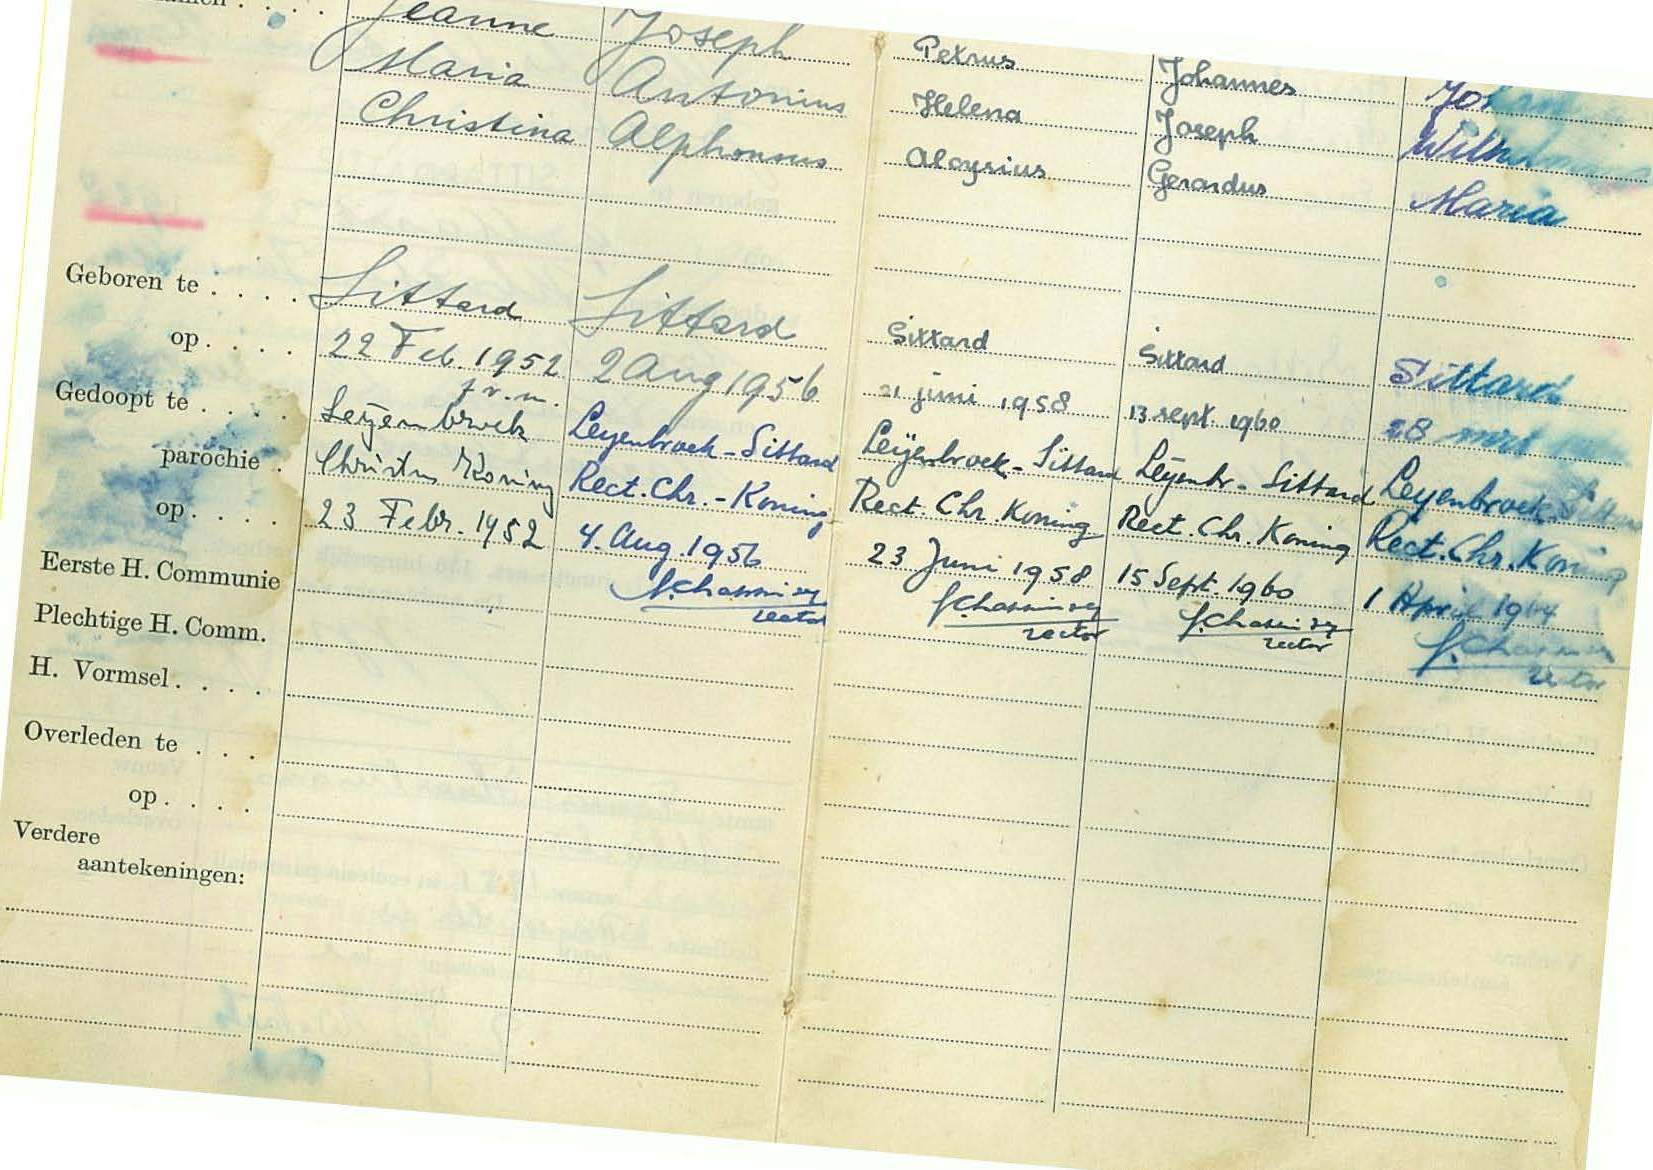 Jeanne Joseph Petrus Johannes
Maria Antonius Helena Joseph
Christina Alphonsus Aloysius Gerardus Maria
Geboren te . . . . Sittard Sittard Sittard Sittard Sittard
op . . . . 22 Feb. 1952 2 Aug 1956 21 juni 1958 13 sept. 1960 28
Gedoopt te . . . . Leyenbroek Leyenbroek - Sittard Leÿenbroek - Sittard Leÿenbr. - Sittard Leyenbroek - Sittard
parochie . Christus Koning Rect. Chr. - Koning Rect. Chr. Koning Rect. Chr. Koning Rect. Chr. Koning
op . . . . 23 Febr. 1952 4. Aug. 1956 23 Juni 1958 15 Sept. 1960 1 April 1964
Eerste H. Communie rector rector rector rector
Plechtige H. Comm.
H. Vormsel . . . .
Overleden te . . .
op . . . .
Verdere
aantekeningen: